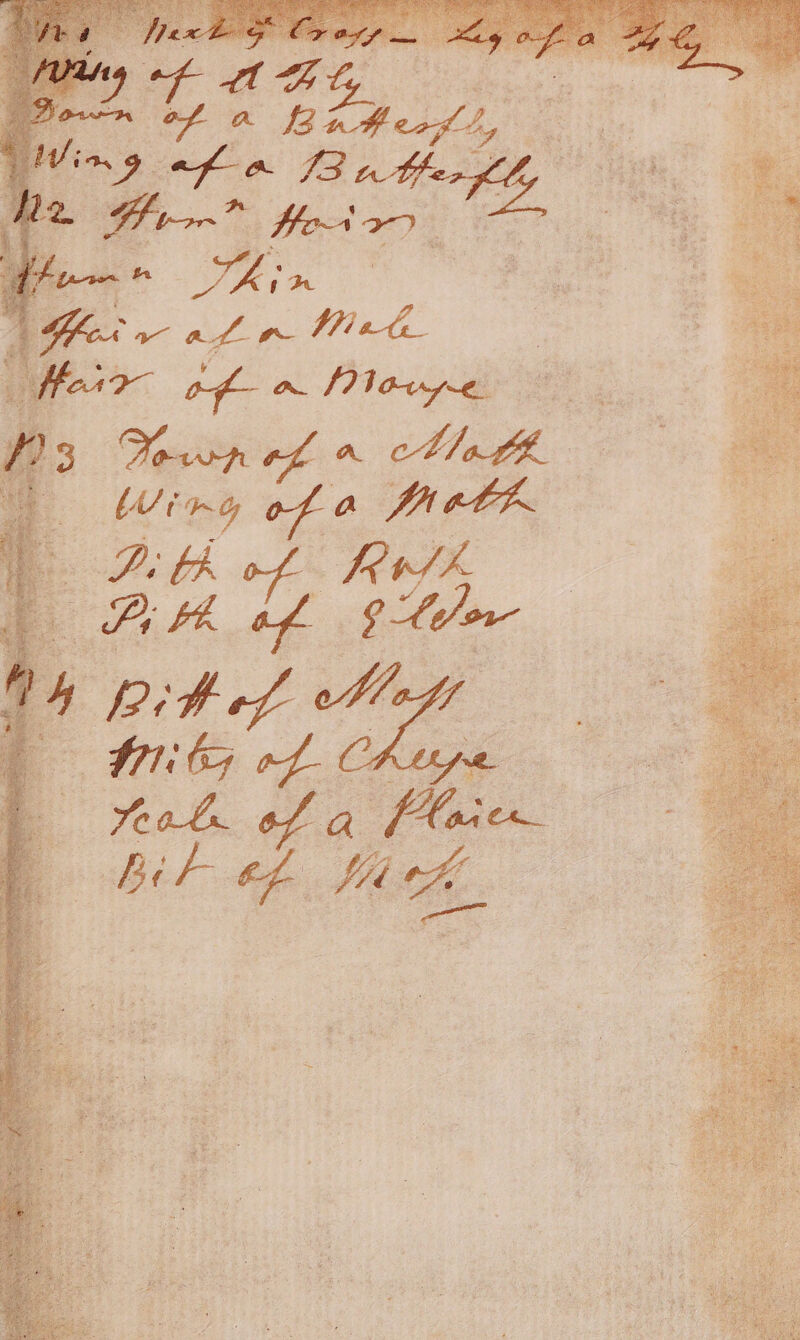 N 1 Next yͤ Cross — Leg of a Fly
Wing of A Fly
Down of a Butterfly
Wing of a Butterfly
N2 Humⁿ Hair
Humⁿ Skin
Hair of a Mole
Hair of a Mouse
N3 Down of a Moth
Wing of a Moth
Pith of Rush
Pith of Elder
N4 Bitt of Moss
Mites of Cheese
Scale of a Plaice
Bit of Moss.